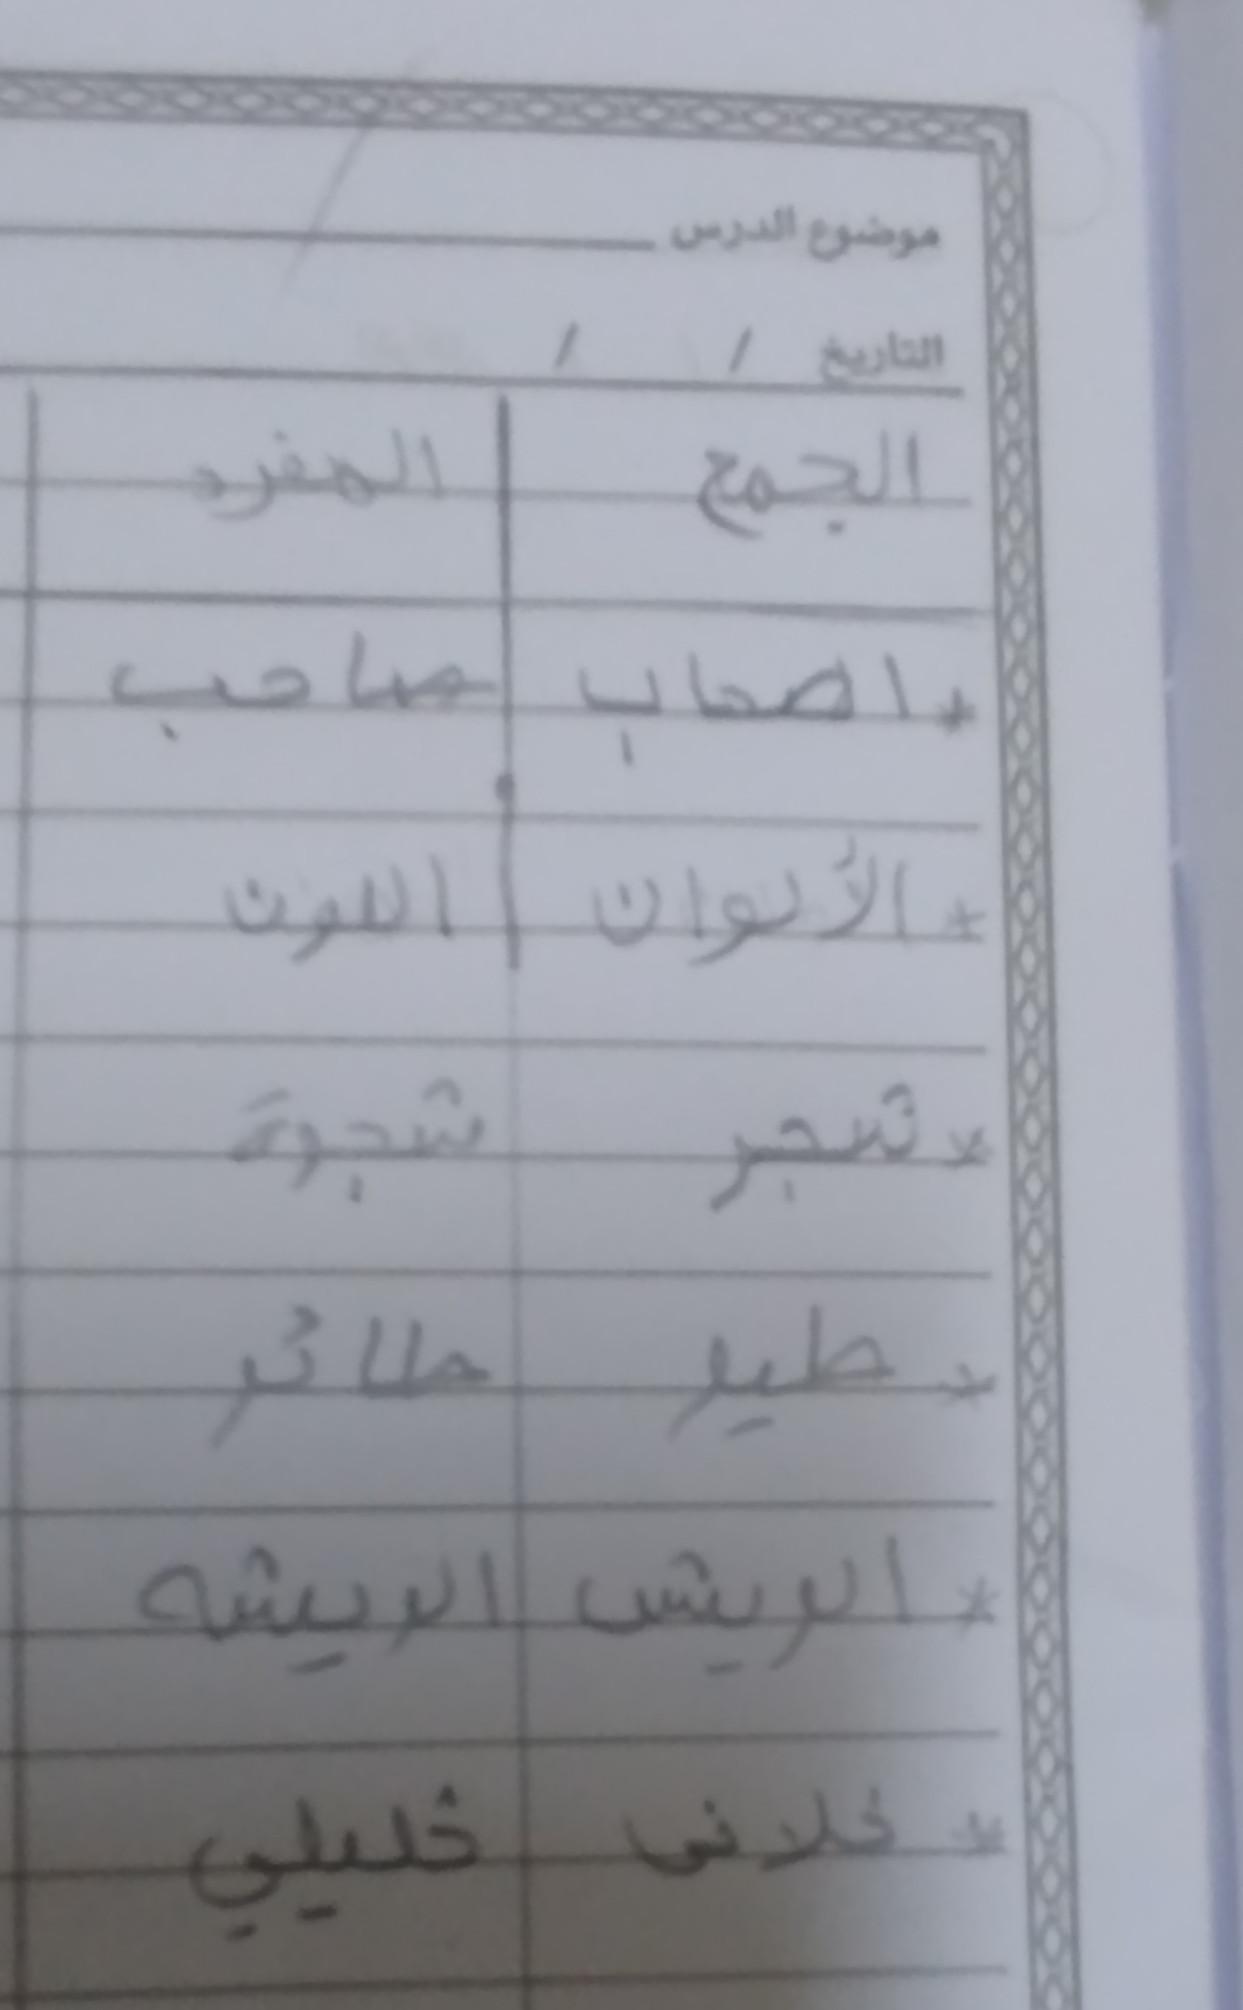 موضوع الدرس
التاريخ / /
الجمع المفرد
* اصحاب صاحب
* الألوان اللون
* شجر شجرة
* طير طائر
* الريش الريشه
* خلانى خليلي